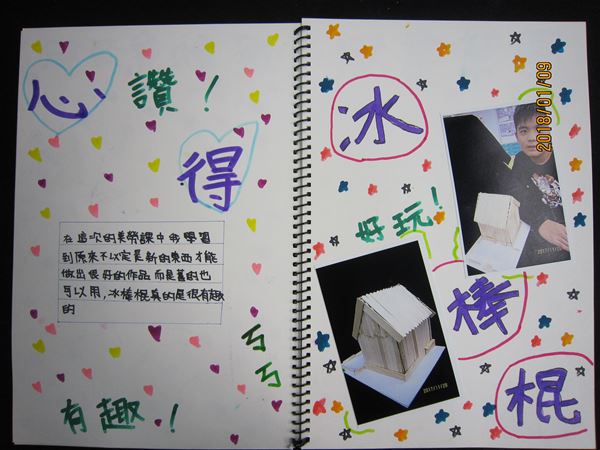 心
讚！
得
在這次的美勞課中我學習
到原來不以定是新的東西才能
做出很好的作品而是舊的也
可以用,冰棒棍真的是很有趣
的
ㄎ
ㄎ
有趣！
冰
好玩！
棒
棍
2018/01/09